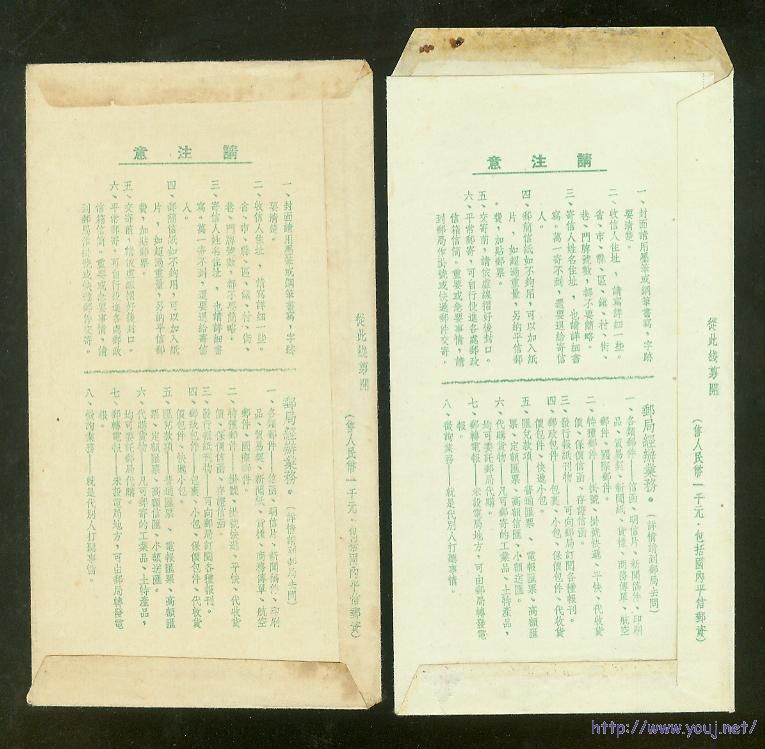 從此线剪開
(售人民幣一千元·包括國內平信郵資)
請注意
一、封面請用墨筆或鋼筆書寫,字跡
要清楚。
二、收信人住址,請寫詳細一些。
省、市、縣、區、鎮、村、街、
巷、門牌號數,都不要簡略。
三、寄信人姓名住址,也請詳細書
寫。萬一寄不到,還要退給寄信
人。
四、郵簡信紙如不夠用,可以加入紙
片,如超過重量,另納平信郵
費,加貼郵票。
五、交寄前,請依虛線摺好後封口。
六、平常郵寄,可自行投進各處郵政
信箱信筒。重要或急要事情,請
到郵局作掛號或快遞郵件交寄。
郵局經辦業務。(詳情請到郵局去問)
一、各類郵件——信函、明信片、新聞稿件、印刷
品、貿易契、新聞紙、貨樣、商務傳單、航空
郵件、國際郵件。
二、特種郵件——掛號、掛號快遞、平快、代收貨
價、保價信函、存證信函。
三、發行報紙刊物——可向郵局訂閱各種報刊。
四、郵政包件——包裹、小包、保價包件、代收貨
價包件、快遞小包。
五、匯兌款項——普通匯票、電報匯票、高額匯
票、定額匯票、高額信匯、小額送匯。
六、代購貨物——凡可郵寄的工業品、土特產品,
均可委託郵局代購。
七、郵轉電報——未設電局地方,可由郵局轉發電
報。
八、徵詢業務——就是代別人打聽事情。
從此线剪開
(售人民幣一千元·包括國內平信郵資)
請注意
一、封面請用墨筆或鋼筆書寫,字跡
要清楚。
二、收信人住址,請寫詳細一些。
省、市、縣、區、鎮、村、街、
巷、門牌號數,都不要簡略。
三、寄信人姓名住址,也請詳細書
寫。萬一寄不到,還要退給寄信
人。
四、郵簡信紙如不夠用,可以加入紙
片,如超過重量,另納平信郵
費,加貼郵票。
五、交寄前,請依虛線摺好後封口。
六、平常郵寄,可自行投進各處郵政
信箱信筒。重要或急要事情,請
到郵局作掛號或快遞郵件交寄。
郵局經辦業務。(詳情請到郵局去問)
一、各類郵件——信函、明信片、新聞稿件、印刷
品、貿易契、新聞紙、貨樣、商務傳單、航空
郵件、國際郵件。
二、特種郵件——掛號、掛號快遞、平快、代收貨
價、保價信函、存證信函。
三、發行報紙刊物——可向郵局訂閱各種報刊。
四、郵政包件——包裹、小包、保價包件、代收貨
價包件、快遞小包。
五、匯兌款項——普通匯票、電報匯票、高額匯
票、定額匯票、高額信匯、小額送匯。
六、代購貨物——凡可郵寄的工業品、土特產品,
均可委託郵局代購。
七、郵轉電報——未設電局地方,可由郵局轉發電
報。
八、徵詢業務——就是代別人打聽事情。
http://www.youj.net/